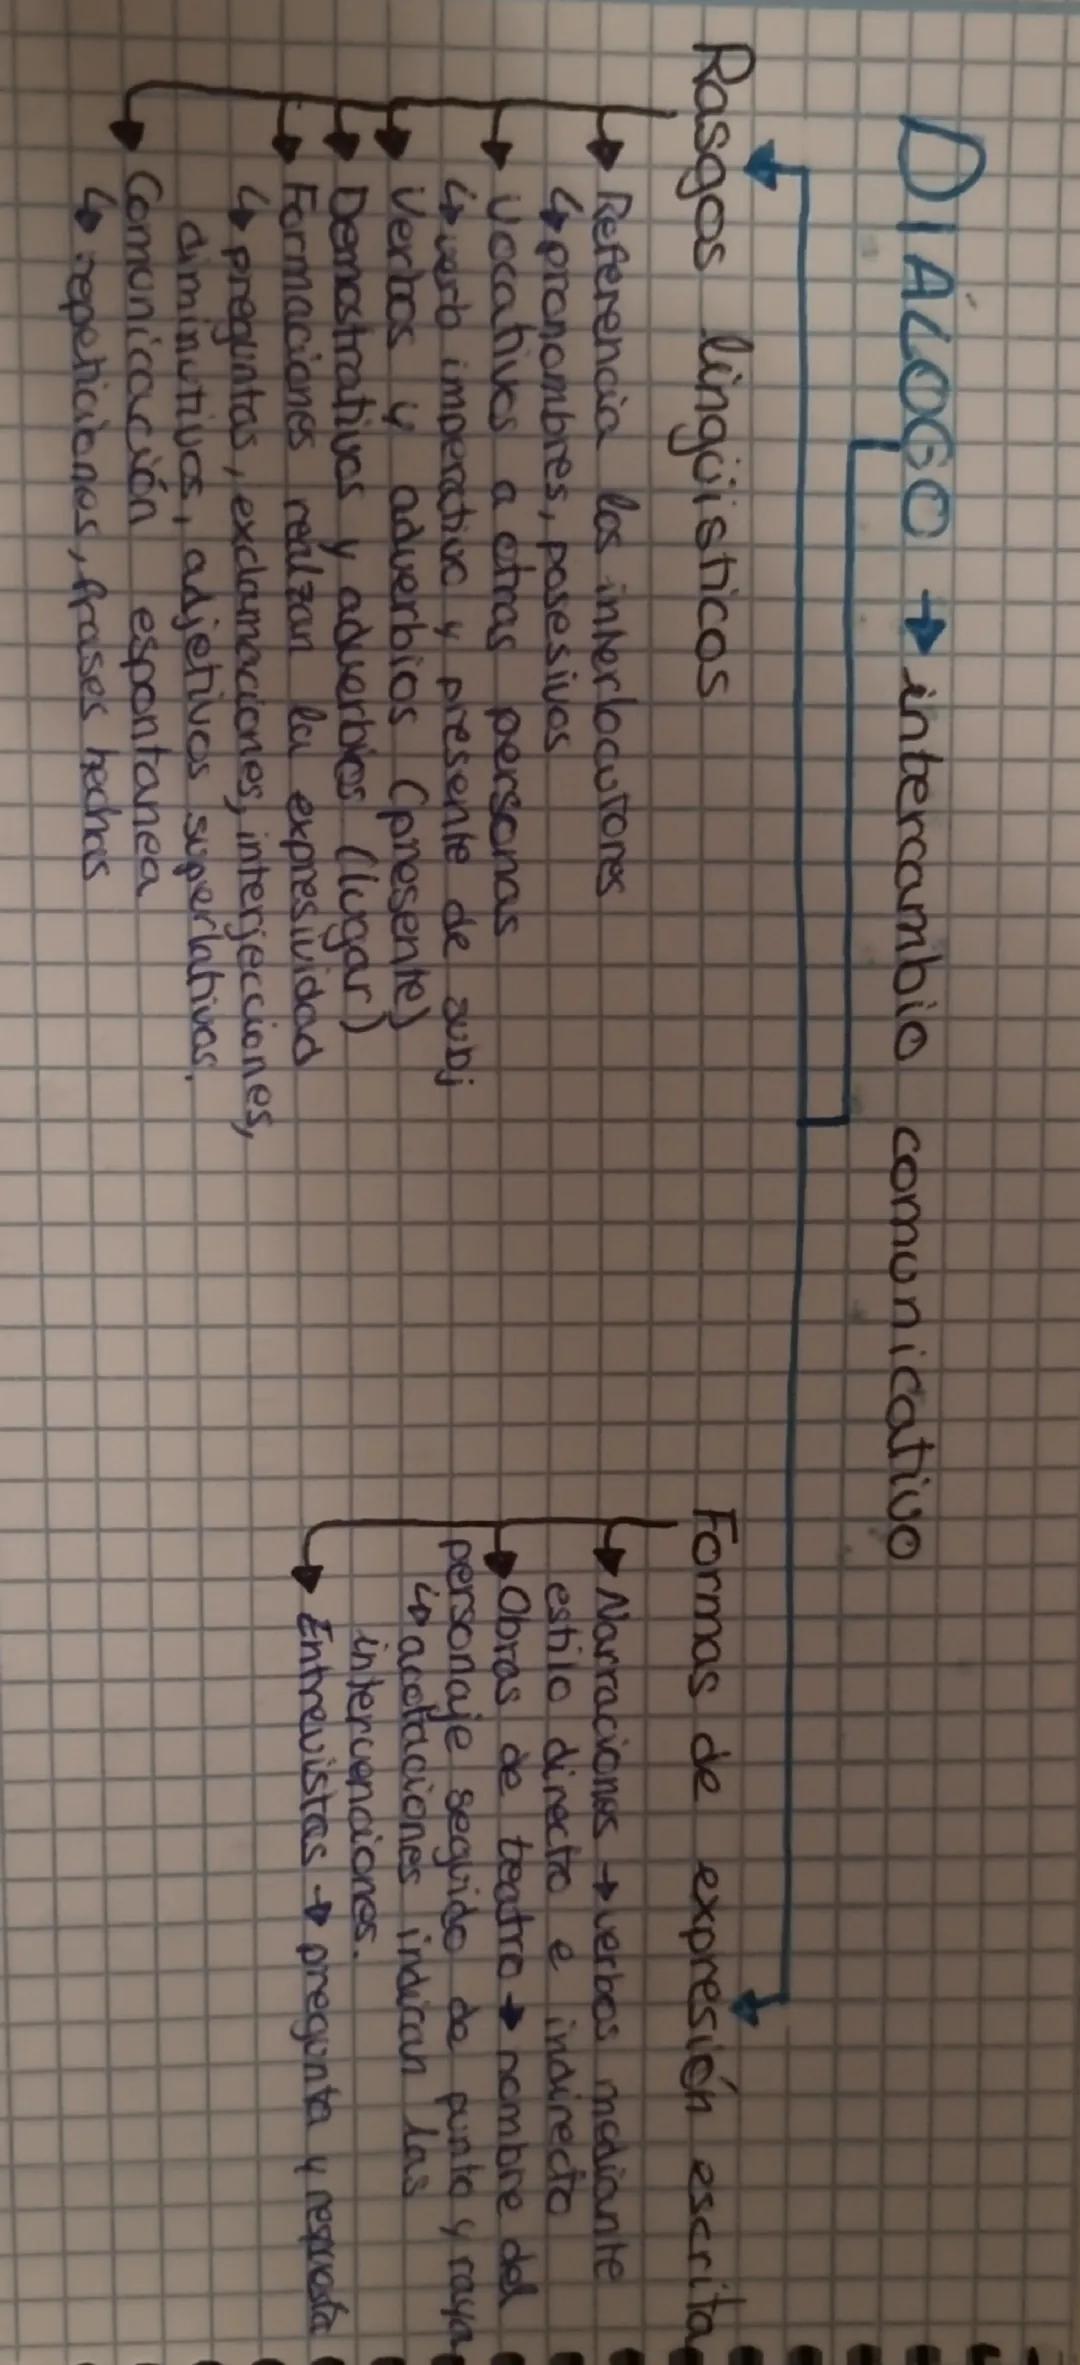 DIÁLOGO → intercambio comunicativo
Rasgos lingüisticos
→ Referencia los interlocutores
↳ pronombres, posesivos
→ Vocativos a otras personas
↳ verb imperativo y presente de subj
→ Verbos y adverbios (presente)
→ Demostrativos y adverbios (lugar)
→ Formaciones realzan la expresividad
↳ preguntas, exclamaciones, interjecciones,
diminutivos, adjetivos superlativos.
→ Comunicación espontanea
↳ repeticiones, frases hechas
Formas de expresión escrita
→ Narraciones → verbos mediante
estilo directo e indirecto
→ Obras de teatro → nombre del
personaje seguido de punto y raya
↳ acotaciones indican las
intervenciones.
→ Entrevistas → pregunta y respuesta